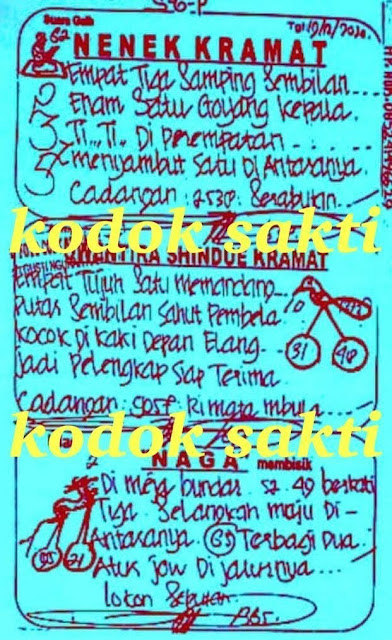 Suara Gaib
NENEK KRAMAT
Empat Tiga Samping Sembilan...
Enam Satu Goyang Kepala.
Ti,,Ti,, Di Perempatan
menyambut Satu Di Antaranya.
Cadangan : 2530. Serabutan...
kodok sakti
SHINDUE KRAMAT
Empat Tujuh Satu Memandang
Putas Sembilan Sahut Pembela
Kocok Di Kaki Depan Elang..
Jadi Pelengkap Siap Terima
Cadangan : Ri mata mbula...
31 48
kodok sakti
NAGA membisik
Di Meja bundar 52. 49 berkati
Tiga Selangkah maju Di -
Antaranya. Terbagi Dua.
Atur Jow Di Jalurnya...
loton